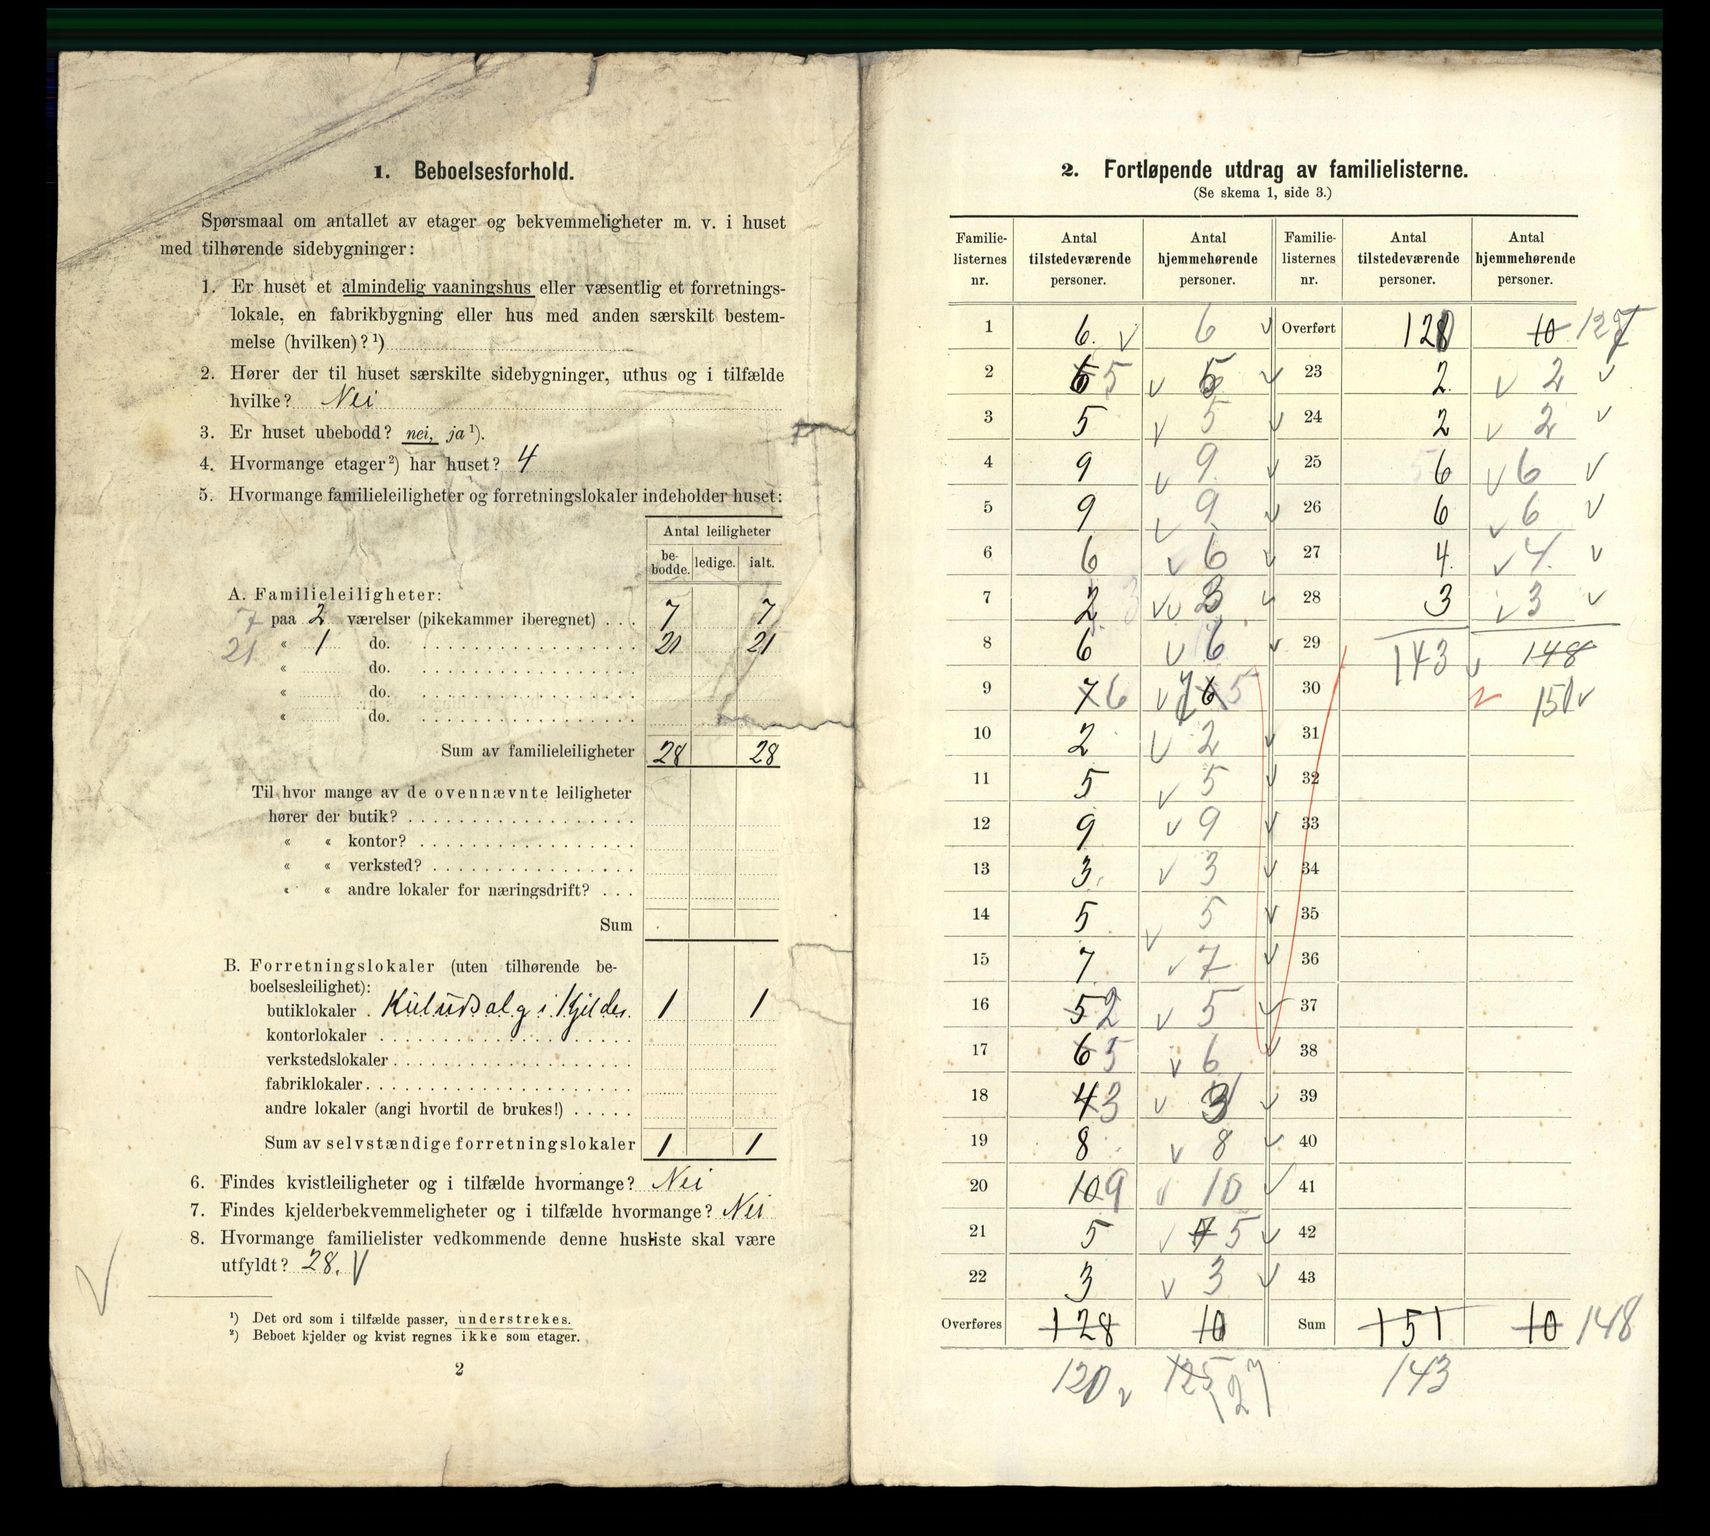 1. Beboelsesforhold.
Spørsmaal om antallet av etager og bekvemmeligheter m. v. i huset
med tilhørende sidebygninger:
1. Er huset et almindelig vaaningshus eller væsentlig et forretnings-
lokale, en fabrikbygning eller hus med anden særskilt bestem-
melse (hvilken)?¹)
2. Hører der til huset særskilte sidebygninger, uthus og i tilfælde
hvilke? Nei
3. Er huset ubebodd? nei, ja¹).
4. Hvormange etager²) har huset? 4
5. Hvormange familieleiligheter og forretningslokaler indeholder huset:
Antal leiligheter
be-bodde. ledige. ialt.
A. Familieleiligheter:
7 paa 2 værelser (pikekammer iberegnet) . . . 7 7
21 « 1 do. 21 21
« do.
« do.
« do.
Sum av familieleiligheter 28 28
Til hvor mange av de ovennævnte leiligheter
hører der butik?
« « kontor?
« « verksted?
« « andre lokaler for næringsdrift? . . .
Sum
B. Forretningslokaler (uten tilhørende be-
boelsesleilighet):
butiklokaler . Kuludsalg i Kjelder. 1 1
kontorlokaler
verkstedslokaler
fabriklokaler
andre lokaler (angi hvortil de brukes!)
Sum av selvstændige forretningslokaler 1 1
6. Findes kvistleiligheter og i tilfælde hvormange? Nei
7. Findes kjelderbekvemmeligheter og i tilfælde hvormange? Nei
8. Hvormange familielister vedkommende denne husliste skal være
utfyldt? 28.
¹) Det ord som i tilfælde passer, understrekes.
²) Beboet kjelder og kvist regnes ikke som etager.
2
2. Fortløpende utdrag av familielisterne.
(Se skema 1, side 3.)
Familie-listernes nr. Antal tilstedeværende personer. Antal hjemmehørende personer. Familie-listernes nr. Antal tilstedeværende personer. Antal hjemmehørende personer.
1 6. 6 Overført 10 127
2 6 5 5 23 2 2
3 5 5 24 2 2
4 9 9 25 6 6
5 9 9 26 6 6
6 6 6 27 4. 4.
7 2 3 3 28 3 3
8 6 6 29 143 148
9 7 6 6 5 30 151
10 2 2 31
11 5 5 32
12 9 9 33
13 3. 3 34
14 5 5 35
15 7 7 36
16 5 2 5 37
17 6 5 6 38
18 4 3 3 39
19 8 8 40
20 10 9 10 41
21 5 5 42
22 3 3 43
Overføres 128 10 Sum 151 10 148
120 125 127 143